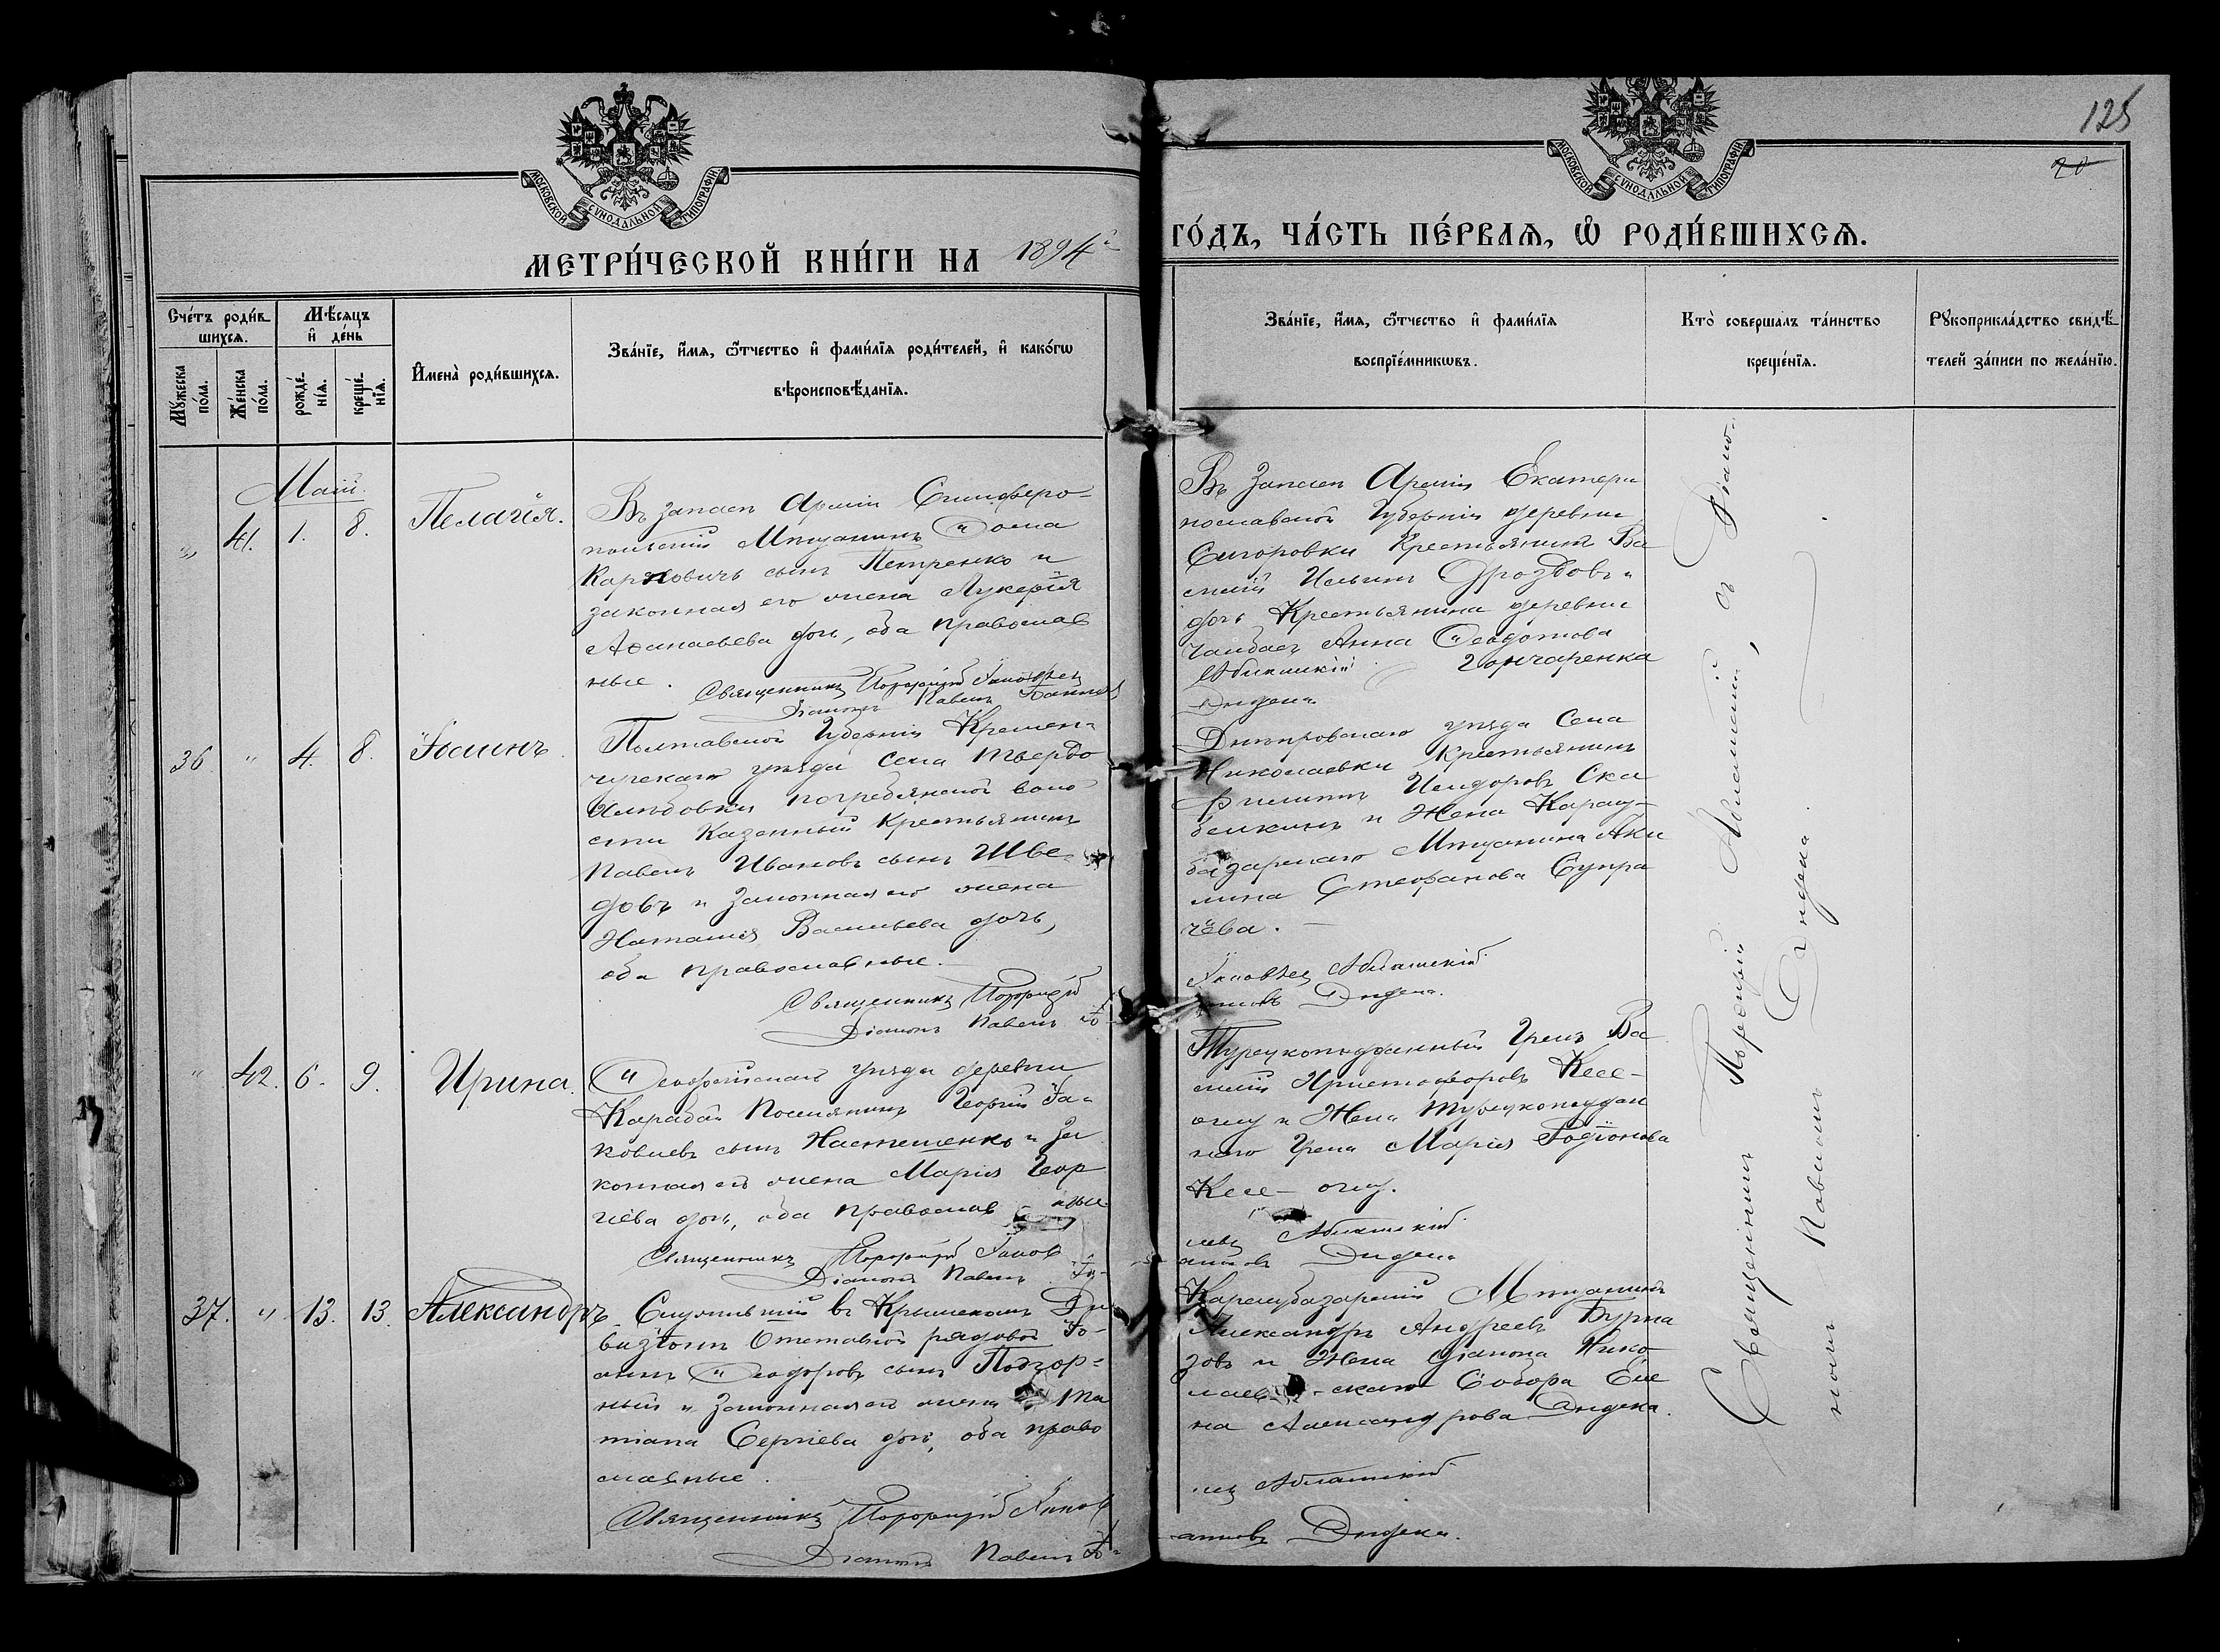 125
МОСКОВСКОЙ СУНОДАЛЬНОЙ ТИПОГРАФІИ
МОСКОВСКОЙ СУНОДАЛЬНОЙ ТИПОГРАФІИ
МЕТРИ́ЧЕСКОЙ КНИ́ГИ НА 1894й
ГО́ДЪ, ЧА́СТЬ ПЕ́РВАЯ, Ѽ РОДИ́ВШИХСЯ.
Сче́тъ роди́в
шихся.
Му́жеска по́ла.
Же́нска по́ла.
Мѣ́сяцъ
и де́нь
рожде́нїя.
креще́нїя.
Имена̀ роди́вшихся.
Зва́нїе, и́мя, ѻ҆́тчество и҆ фами́лїя роди́телей, и҆ како́гѡ
вѣроисповѣ́данїя.
Зва́нїе, и́мя, ѻ҆́тчество и҆ фами́лїя
воспрїе́мникѡвъ.
Кто̀ соверша́лъ та́инство
креще́нїя.
Рукоприкла́дство свидѣ́
телей за́писи по жела́нїю.
Май.
" 41. 1. 8. Пелагія.
Въ запасѣ Арміи Симферо-
польскій Мѣщанинъ Ѳома
Карповичъ сынъ Петренко и
законная его жена Лукерія
Аѳанасьева дочь, оба православ
ные.
Священникъ Порфирій Яковлец
Діаконъ Павелъ
Въ запасѣ Арміи Екатери
нославской Губерніи деревни
Сигоровки Крестьянинъ Ва
силій Ильинъ Дроздовъ и
дочь Крестьянина деревни
Анна Ѳеодотова
Гончаренка
Аблашскій
Дидена
36 " 4. 8. Іоаннъ.
Полтавской Губерніи Кремен-
чугскаго уѣзда села Твердо
хлѣбовки погребянской воло
сти Казенный Крестьянинъ
Павелъ Ивановъ сынъ Шве-
довъ и законная его жена
Наталія Васильева дочь,
оба православные.
Священникъ Порфирій
Діаконъ Павелъ
Днѣпровскаго уѣзда Села
Николаевки Крестьянинъ
Филиппъ Исидоровъ Ска
белкинъ и Жена Карасу-
базарскаго Мѣщанина Аки
лина Стефанова Супра
чёва.
Яковлец Аблашскій
Дидена.
" 42. 6. 9. Ирина.
Ѳеодосійскаго уѣзда деревни
Карабай Поселянинъ Георгій Іа-
ковлевъ сынъ Настешенко и за
конная его жена Марія Геор
гіева дочь, оба православные
Священникъ Порфирій Яков
Діаконъ Павелъ
Турецкоподданный Грекъ Ва
силій Христофоровъ Кесе-
оглу и Жена Турецкоподдан
наго Грека Марія Родіонова
Кесе-оглу.
Аблашскій
Дидена
37. " 13. 13. Александръ.
Служившій въ Крымскомъ Ди
визіонѣ Отставной рядовой Іо-
аннъ Ѳеодоровъ сынъ Подгор-
ный и законная его жена Та
тіана Сергіева дочь, оба право
славные.
Священникъ Порфирій Яков
Діаконъ Павелъ
Карасубазарскій Мѣщанинъ
Александръ Андреевъ Бурна
зовъ и Жена діакона Нико
лаевскаго Собора Еле
на Александрова Дидена.
Аблашскій
Дидена.
Священникъ Порфирій Аблашскій, съ Діако-
номъ Павломъ Дидена.